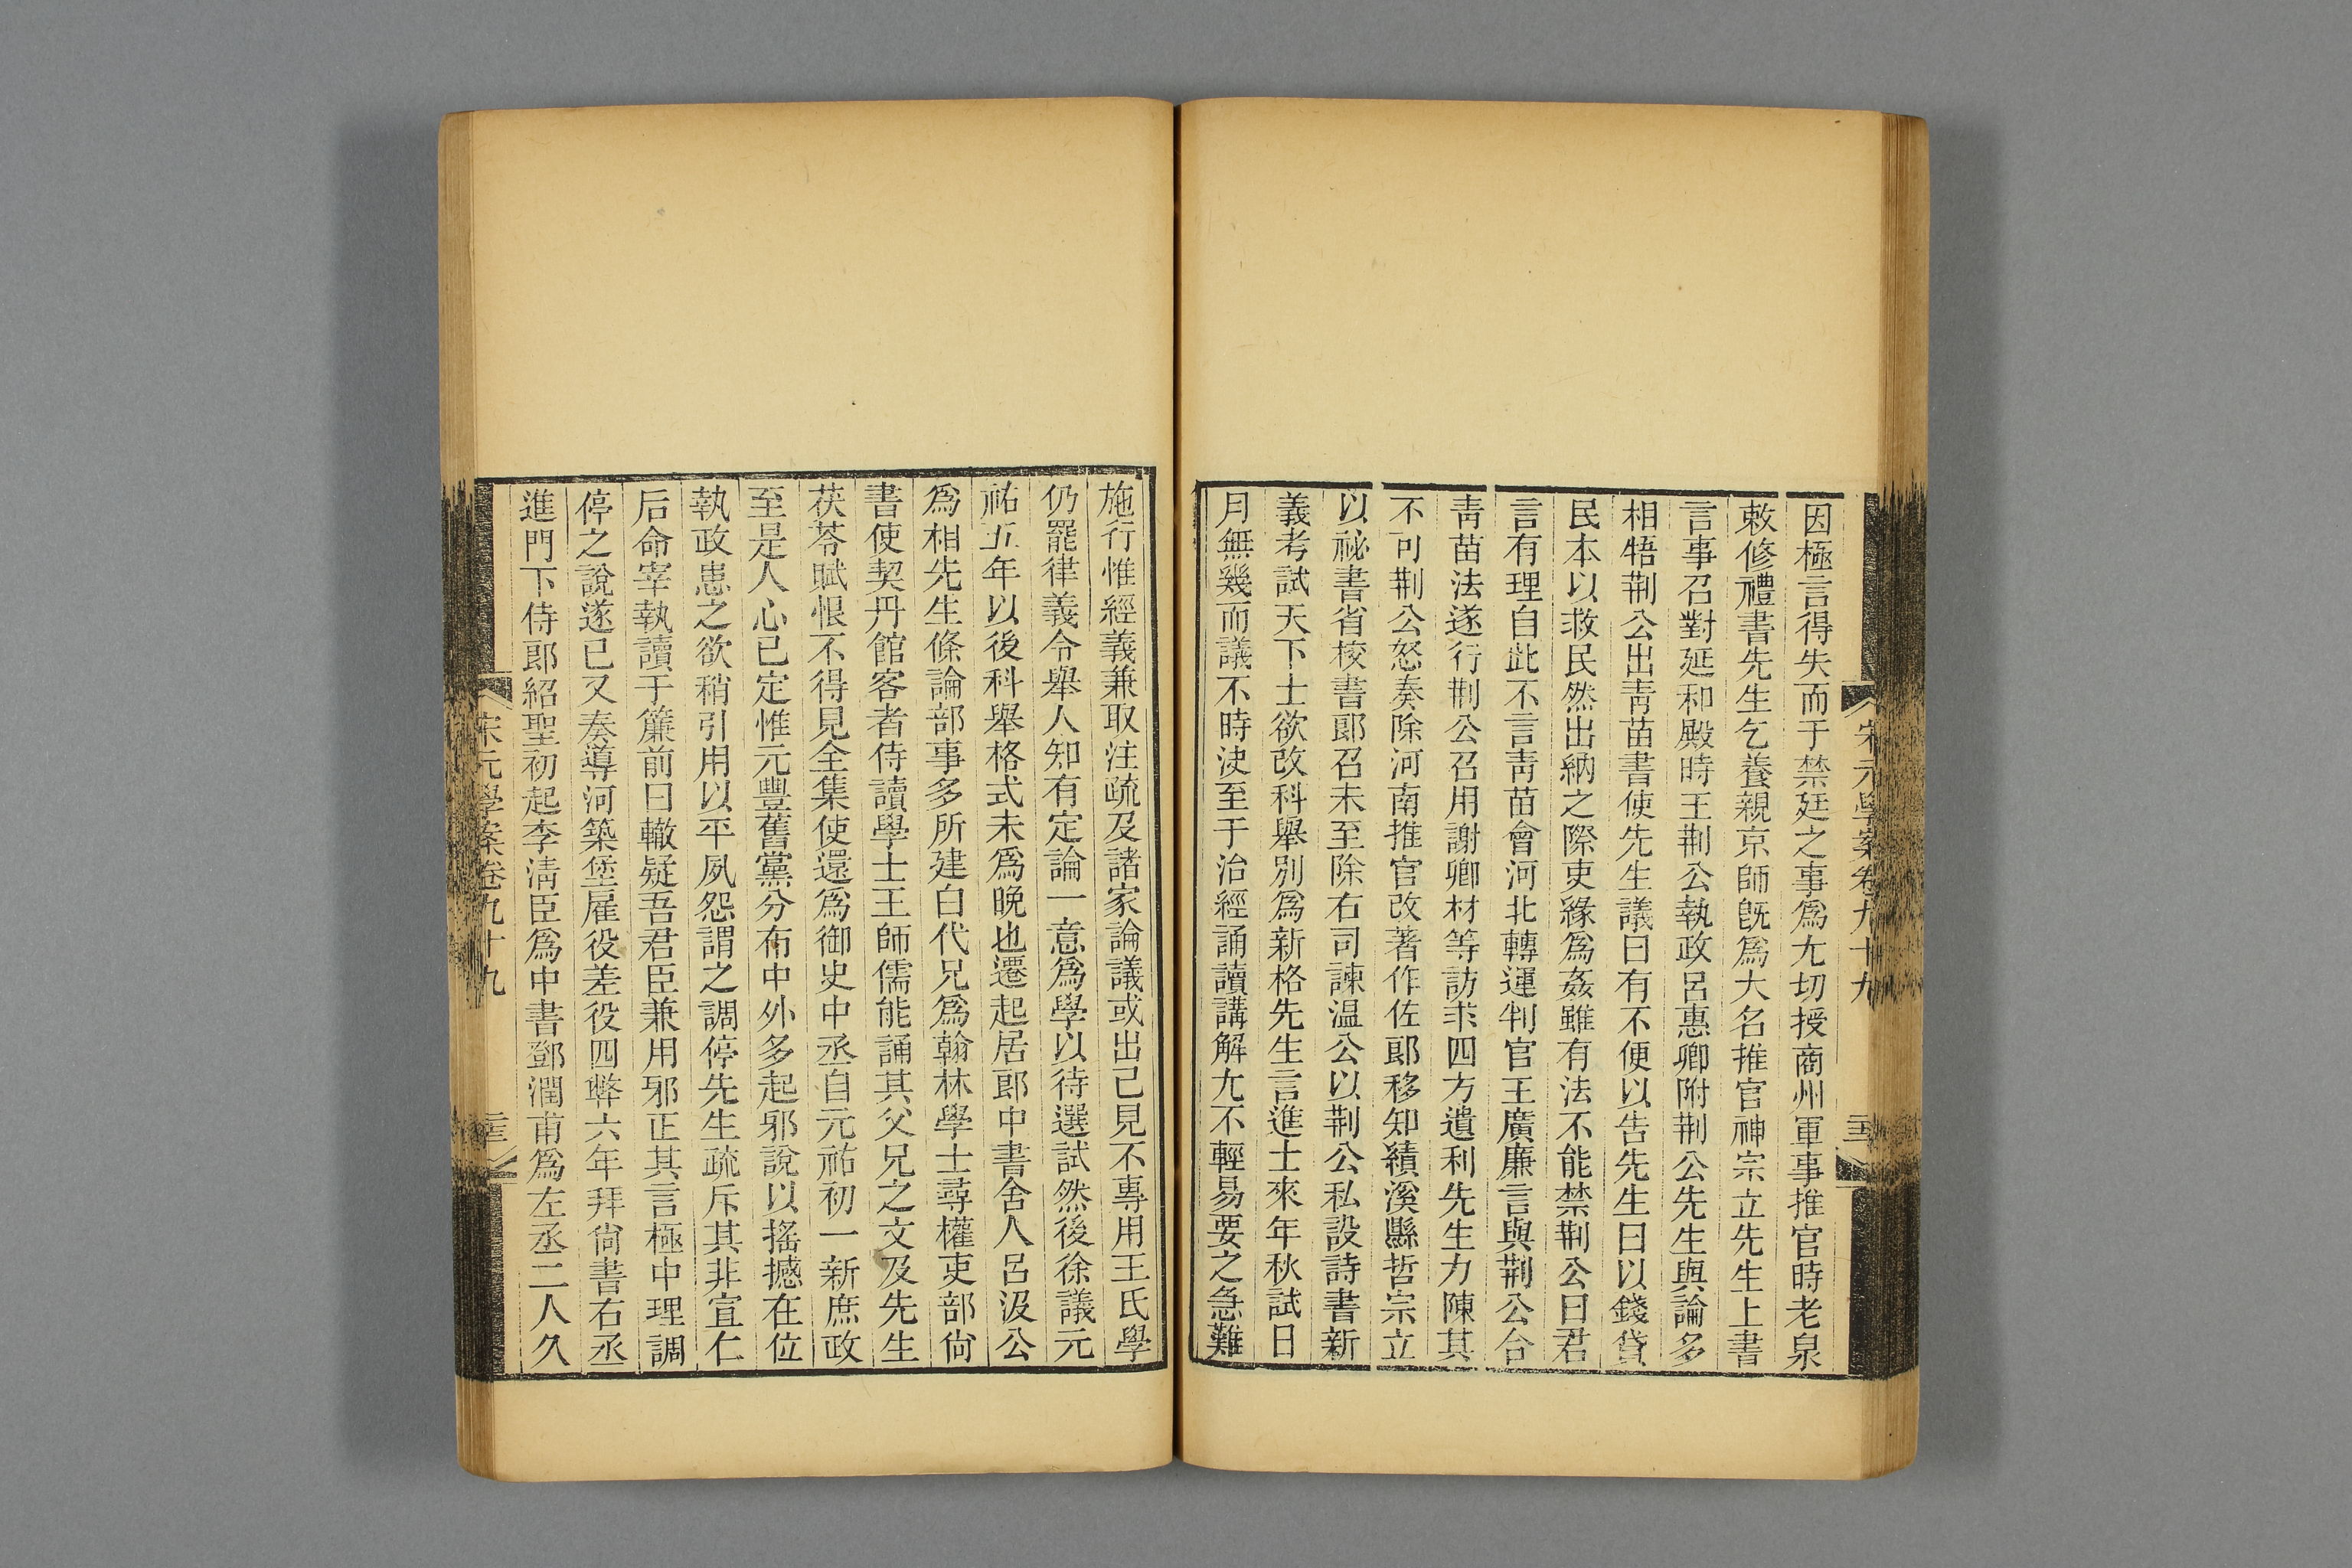 宋元學案卷九十九
因極言得失而于禁廷之事爲尢切授商州軍事推官時老泉
敕修禮書先生乞養親京師旣爲大名推官神宗立先生上書
言事召對延和殿時王荆公執政呂惠卿附荆公先生與論多
相牾荆公出靑苗書使先生議曰有不便以告先生曰以錢貸
民本以救民然出納之際吏緣爲姦雖有法不能禁荆公曰君
言有理自此不言靑苗會河北轉運判官王廣廉言與荆公合
靑苗法遂行荆公召用謝卿材等訪求四方遺利先生力陳其
不可荆公怒奏除河南推官改著作佐郎移知績溪縣哲宗立
以祕書省校書郎召未至除右司諫温公以荆公私設詩書新
義考試天下士欲改科舉別爲新格先生言進士來年秋試日
月無幾而議不時決至于治經誦讀講解尢不輕易要之急難
施行惟經義兼取注疏及諸家論議或出己見不專用王氏學
仍罷律義令舉人知有定論一意爲學以待選試然後徐議元
祐五年以後科舉格式未爲晚也遷起居郎中書舍人呂汲公
爲相先生條論部事多所建白代兄爲翰林學士尋權吏部尙
書使契丹館客者侍讀學士王師儒能誦其父兄之文及先生
茯苓賦恨不得見全集使還爲御史中丞自元祐初一新庶政
至是人心已定惟元豐舊黨分布中外多起邪說以搖撼在位
執政患之欲稍引用以平夙怨謂之調停先生疏斥其非宣仁
后命宰執讀于簾前曰轍疑吾君臣兼用邪正其言極中理調
停之說遂已又奏導河築堡雇役差役四弊六年拜尙書右丞
進門下侍郎紹聖初起李淸臣爲中書鄧潤甫爲左丞二人久
宋元學案卷九十九